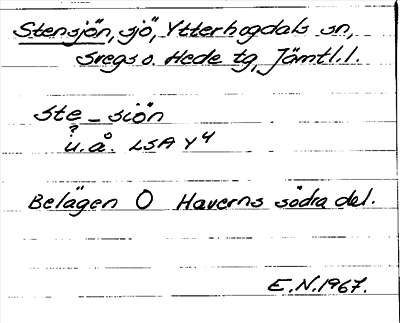 Stensjön, sjö, Ytterhogdals sn,
Svegs o. Hede tg, Jämtl. l.
ste_siön
?
u.å. LSA Y4
Belägen O Haverns södra del.
E.N. 1967.